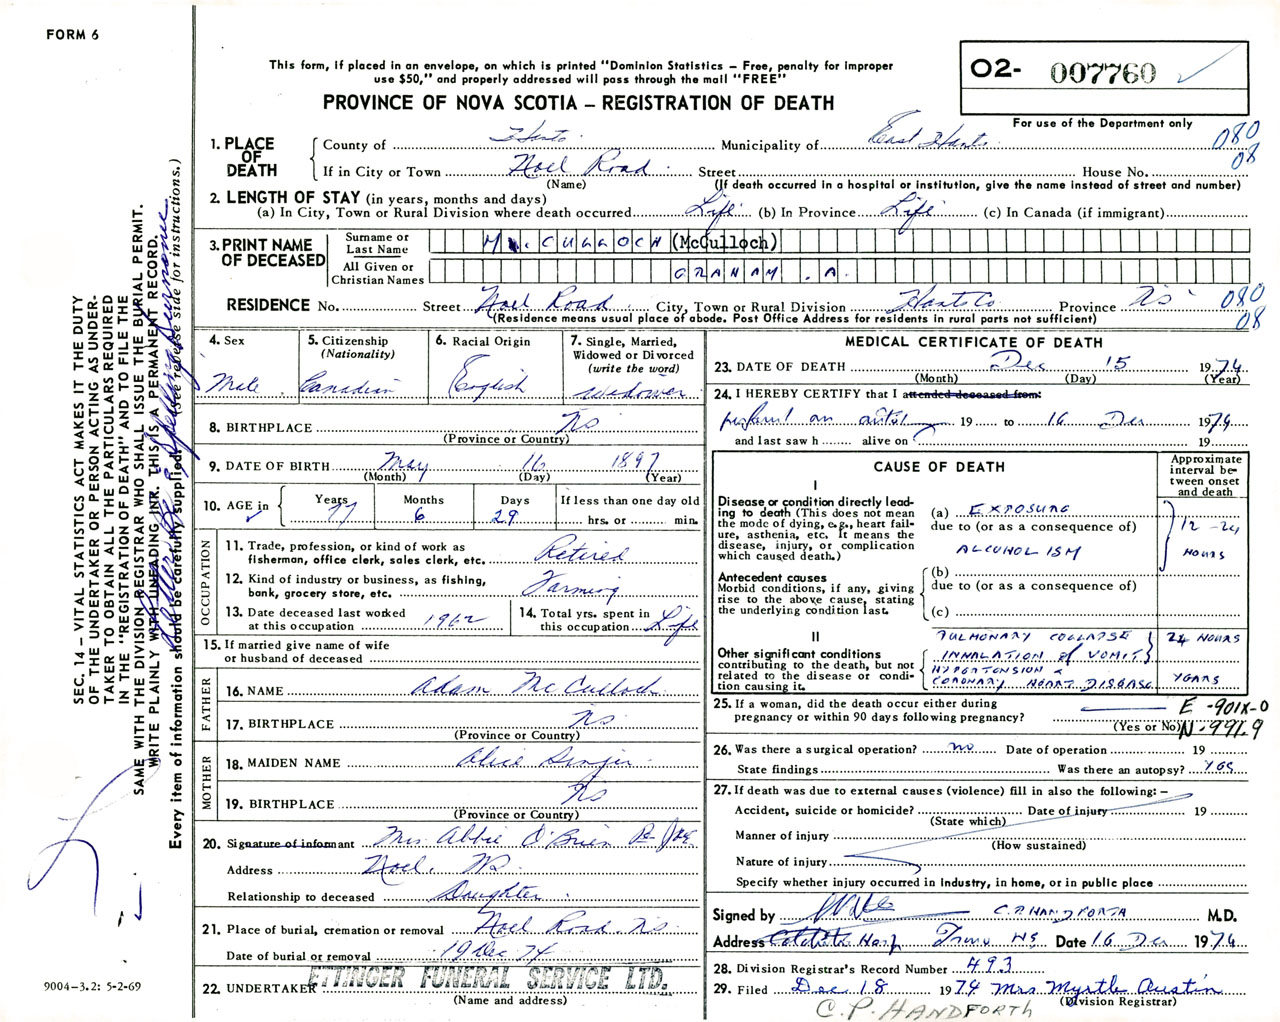 FORM 6
This form, if placed in an envelope, on which is printed "Dominion Statistics – Free, penalty for improper
use $50," and properly addressed will pass through the mail "FREE"
PROVINCE OF NOVA SCOTIA – REGISTRATION OF DEATH
O2- 007760
For use of the Department only
1. PLACE OF DEATH
County of Hants Municipality of East Hants 080
If in City or Town Noel Road Street House No. 08
(Name) (If death occurred in a hospital or institution, give the name instead of street and number)
2. LENGTH OF STAY (in years, months and days)
(a) In City, Town or Rural Division where death occurred Life (b) In Province Life (c) In Canada (if immigrant)
3. PRINT NAME OF DECEASED
Surname or Last Name McCULLOCH (McCulloch)
All Given or Christian Names GRAHAM . A.
RESIDENCE No. Street Noel Road City, Town or Rural Division Hants Co Province NS 080
(Residence means usual place of abode. Post Office Address for residents in rural parts not sufficient) 08
4. Sex Male
5. Citizenship (Nationality) Canadian
6. Racial Origin English
7. Single, Married, Widowed or Divorced (write the word) Widower
8. BIRTHPLACE NS
(Province or Country)
9. DATE OF BIRTH May 16 1897
(Month) (Day) (Year)
10. AGE in Years 77 Months 6 Days 29 If less than one day old
hrs. or min.
OCCUPATION
11. Trade, profession, or kind of work as
fisherman, office clerk, sales clerk, etc. Retired
12. Kind of industry or business, as fishing,
bank, grocery store, etc. Farming
13. Date deceased last worked
at this occupation 1962
14. Total yrs. spent in
this occupation Life
15. If married give name of wife
or husband of deceased
FATHER
16. NAME Adam McCulloch
17. BIRTHPLACE NS
(Province or Country)
MOTHER
18. MAIDEN NAME Alice
19. BIRTHPLACE NS
(Province or Country)
20. Signature of informant Mrs Abbie O'Brien
Address Noel. NS.
Relationship to deceased Daughter
21. Place of burial, cremation or removal Noel Road. NS
Date of burial or removal 19 Dec 74
22. UNDERTAKER ETTINGER FUNERAL SERVICE LTD.
(Name and address)
MEDICAL CERTIFICATE OF DEATH
23. DATE OF DEATH Dec 15 1974
(Month) (Day) (Year)
24. I HEREBY CERTIFY that I attended deceased from:
19 to 16 Dec 1974
and last saw h alive on 19
CAUSE OF DEATH
Approximate interval between onset and death
I
Disease or condition directly leading to death (This does not mean the mode of dying, e.g., heart failure, asthenia, etc. It means the disease, injury, or complication which caused death.)
(a) EXPOSURE
due to (or as a consequence of)
ALCOHOLISM
12 - 24
HOURS
Antecedent causes
Morbid conditions, if any, giving rise to the above cause, stating the underlying condition last.
(b)
due to (or as a consequence of)
(c)
II
Other significant conditions
contributing to the death, but not related to the disease or condition causing it.
PULMONARY COLLAPSE 24 HOURS
INHALATION of VOMIT
HYPERTENSION &
CORONARY HEART DISEASE YEARS
25. If a woman, did the death occur either during
pregnancy or within 90 days following pregnancy?
(Yes or No)
E -901X-0
N-991.9
26. Was there a surgical operation? no Date of operation 19
State findings Was there an autopsy? YES
27. If death was due to external causes (violence) fill in also the following: –
Accident, suicide or homicide? Date of injury 19
(State which)
Manner of injury
(How sustained)
Nature of injury
Specify whether injury occurred in Industry, in home, or in public place
Signed by C.P. HANDFORTH M.D.
Address Colchester Hosp Truro NS Date 16 Dec 1974
28. Division Registrar's Record Number 493
29. Filed Dec 18 1974 Mrs Myrtle Austin
(Division Registrar)
C.P. HANDFORTH
SEC. 14 – VITAL STATISTICS ACT MAKES IT THE DUTY
OF THE UNDERTAKER OR PERSON ACTING AS UNDER-
TAKER TO OBTAIN ALL THE PARTICULARS REQUIRED
IN THE "REGISTRATION OF DEATH" AND TO FILE THE
SAME WITH THE DIVISION REGISTRAR WHO SHALL ISSUE THE BURIAL PERMIT.
WRITE PLAINLY WITH UNFADING INK. THIS IS A PERMANENT RECORD.
Every item of information should be carefully supplied. (See reverse side for instructions.)
9004-3.2: 5-2-69